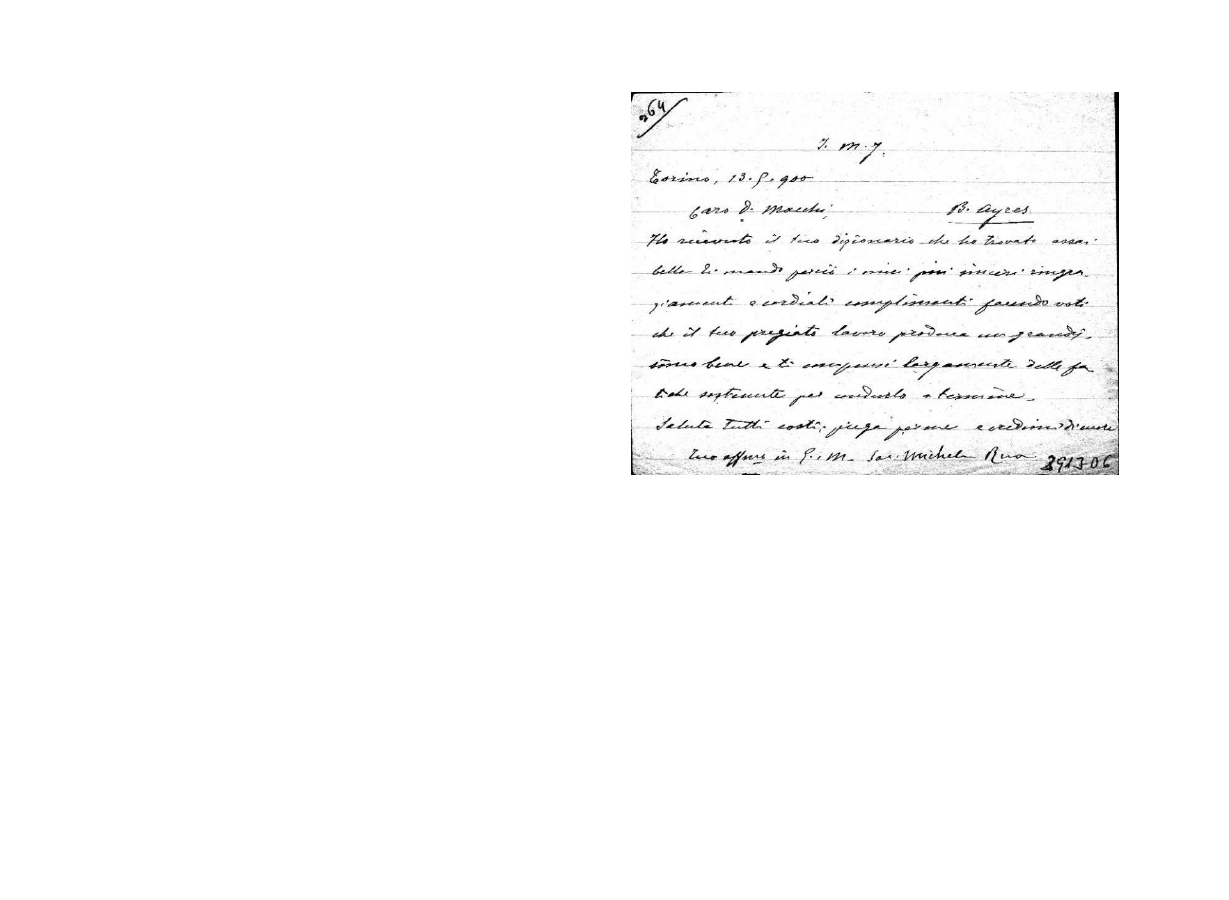 264
J. M. J.
Torino, 13.5.900
Caro D. Macchi, B. Ayres
Ho ricevuto il tuo dizionario che ho trovato assai
bello. Ti mando perciò i miei più sinceri ringra-
ziamenti e cordiali complimenti facendo voti
che il tuo pregiato lavoro produca un grandis-
simo bene e ti compensi largamente delle fa-
tiche sostenute per condurlo a termine.
Saluta tutti costì, prega per me e credimi di cuore
tuo affmo in G. M. Sac. Michele Rua
3913D6